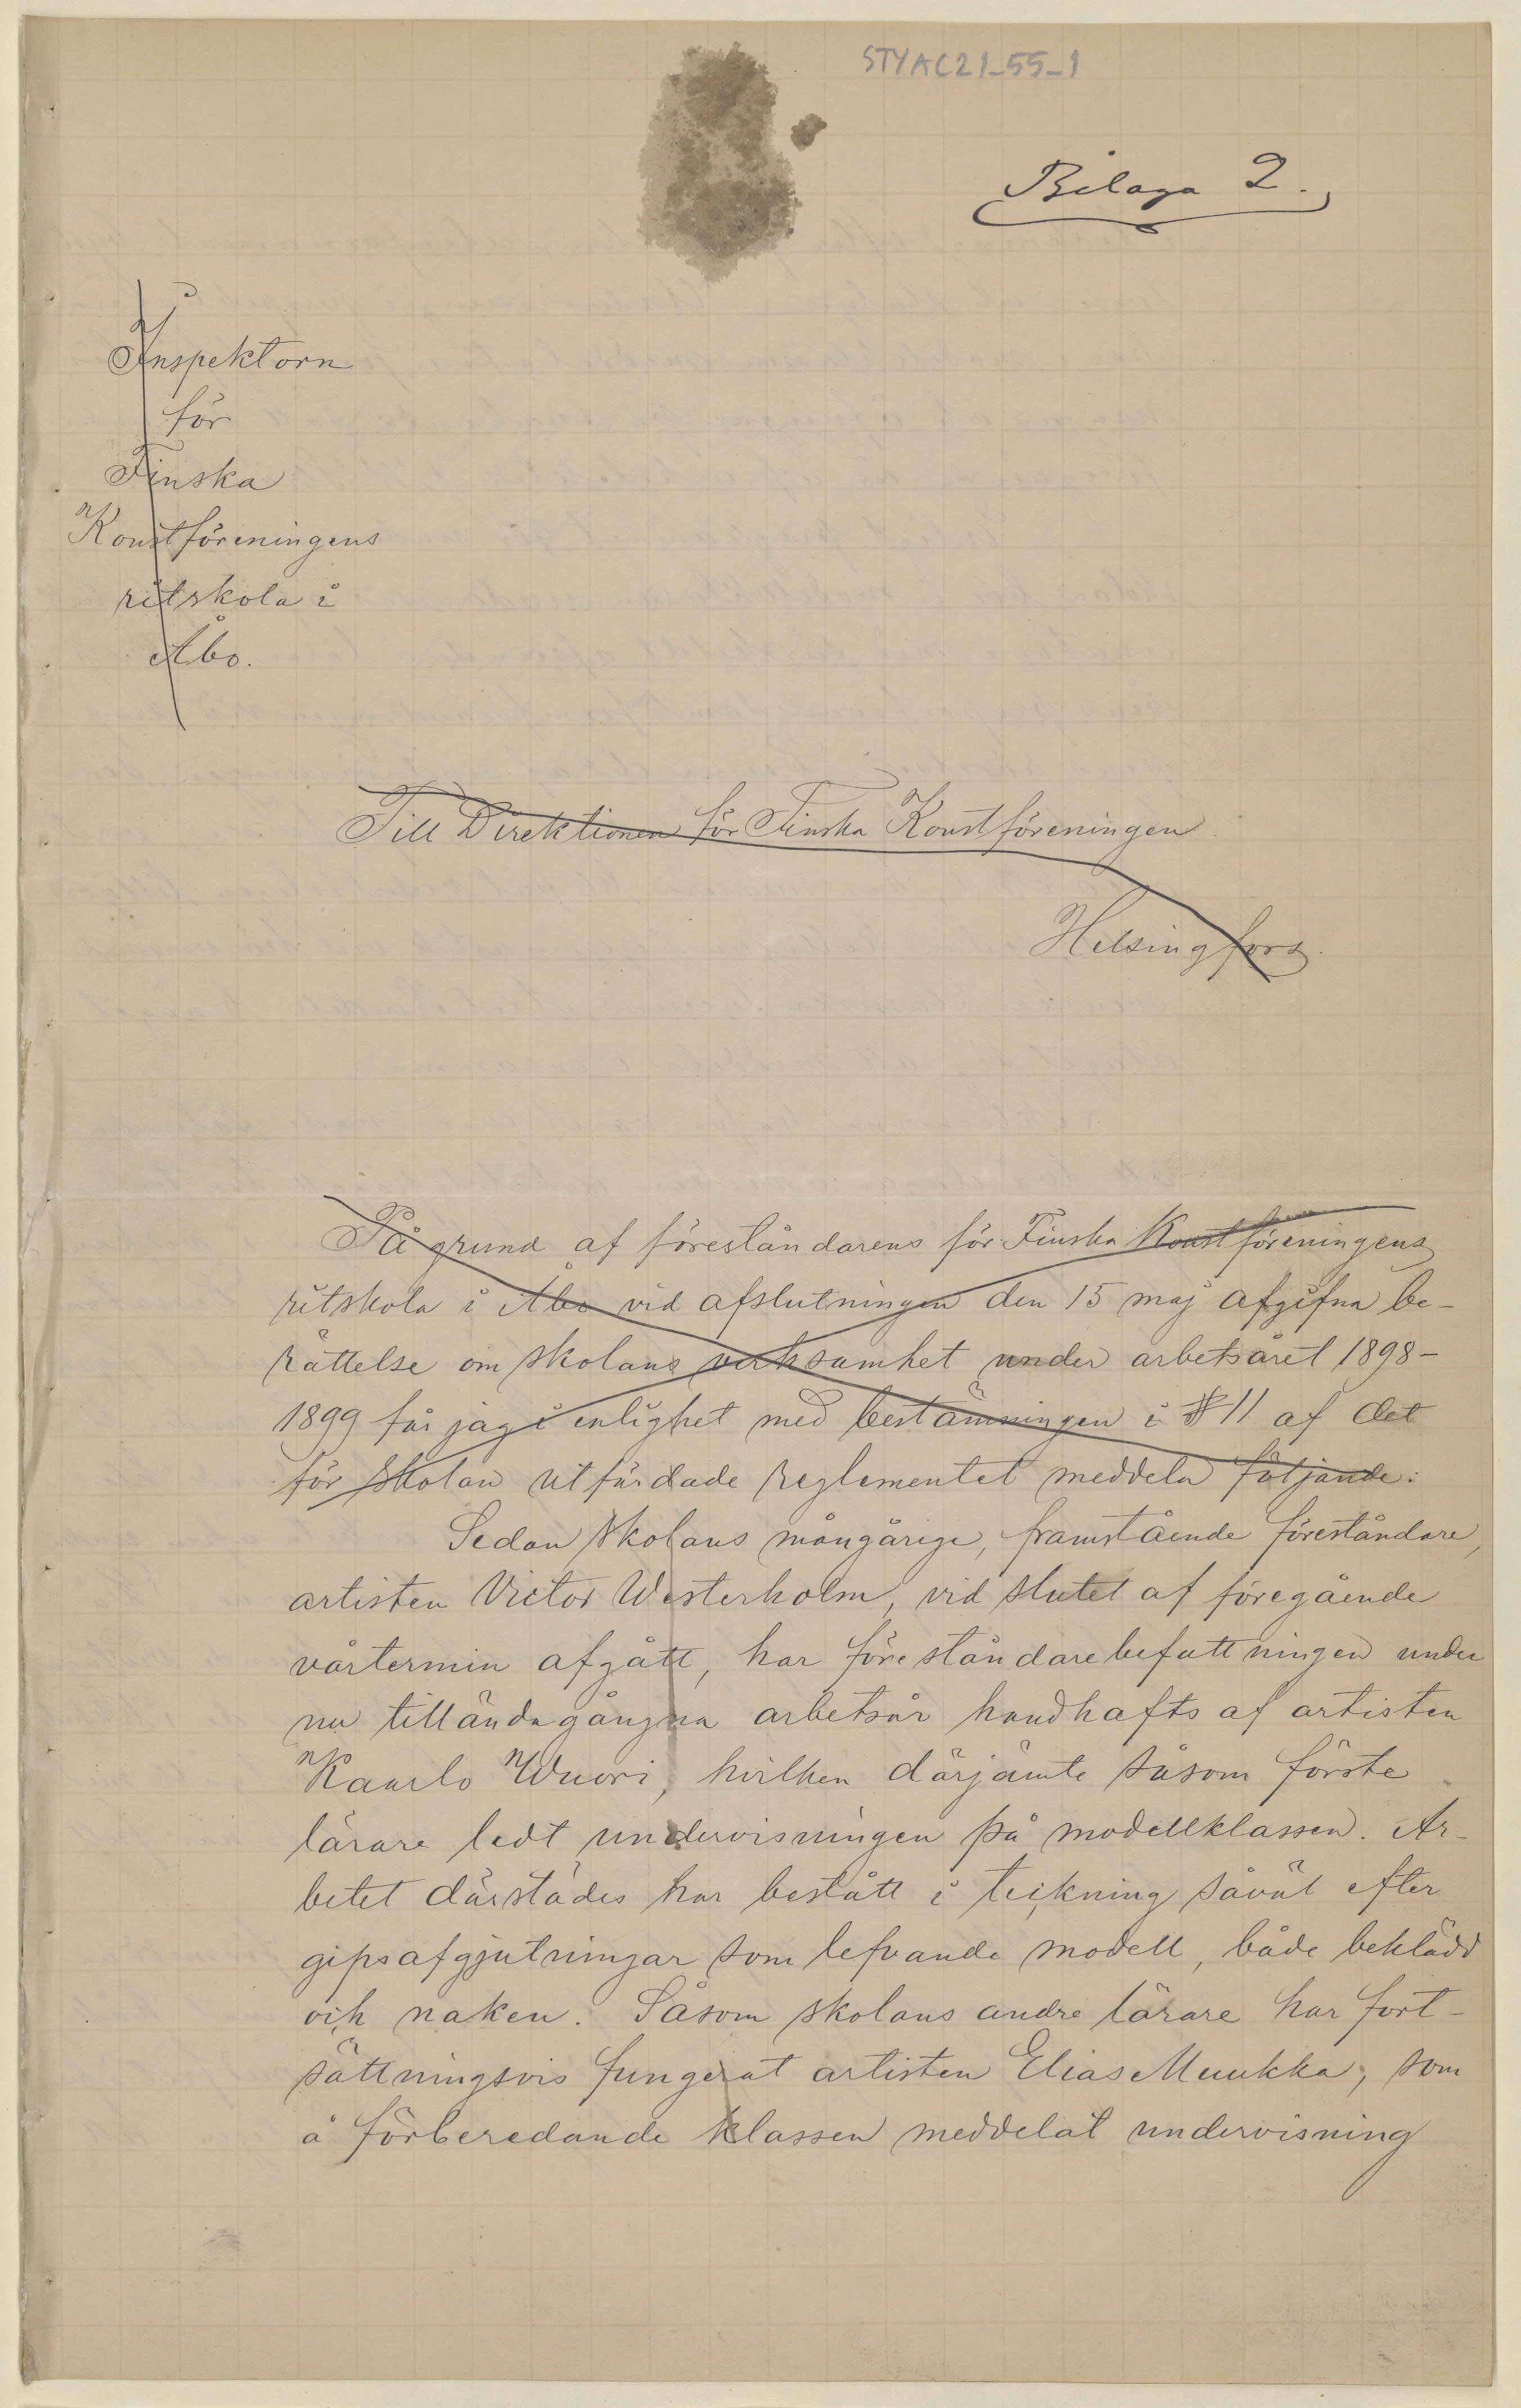 STYAC21_55_1
Bilaga 2.
Inspektorn
för
Finska
Konstföreningens
ritskola i
Åbo.
Till Direktionen för Finska Konstföreningen.
Helsingfors.
På grund af föreståndarens för Finska Konstföreningens
ritskola i Åbo vid afslutningen den 15 maj afgifna be-
rättelse om skolans verksamhet under arbetsåret 1898-
1899 får jag i enlighet med bestämningen i § 11 af det
för skolan utfärdade reglementet meddela följande:
Sedan skolans mångårige, framstående föreståndare,
artisten Victor Westerholm, vid slutet af föregående
vårtermin afgått, har föreståndarebefattningen under
nu tilländagångna arbetsår handhafts af artisten
Kaarlo Wuori, hvilken därjämte såsom förste
lärare ledt undervisningen på modellklassen. Ar-
betet därstädes har bestått i teckning såväl efter
gipsafgjutningar som lefvande modell, både beklädd
och naken. Såsom skolans andre lärare har fort-
sättningsvis fungerat artisten Elias Muukka, som
å förberedande klassen meddelat undervisning